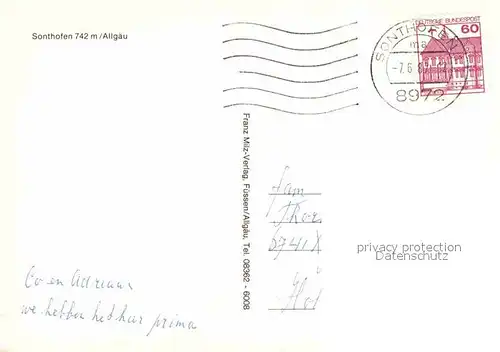 Sonthofen 742 m/Allgäu
SONTHOFEN
ma
-7.6.8
8972
DEUTSCHE BUNDESPOST
60
Franz Milz-Verlag, Füssen/Allgäu, Tel. 08362 - 6008
Fam
Thor
6741X
privacy protection
Datenschutz
Co en Adriaan
we hebben het hier prima